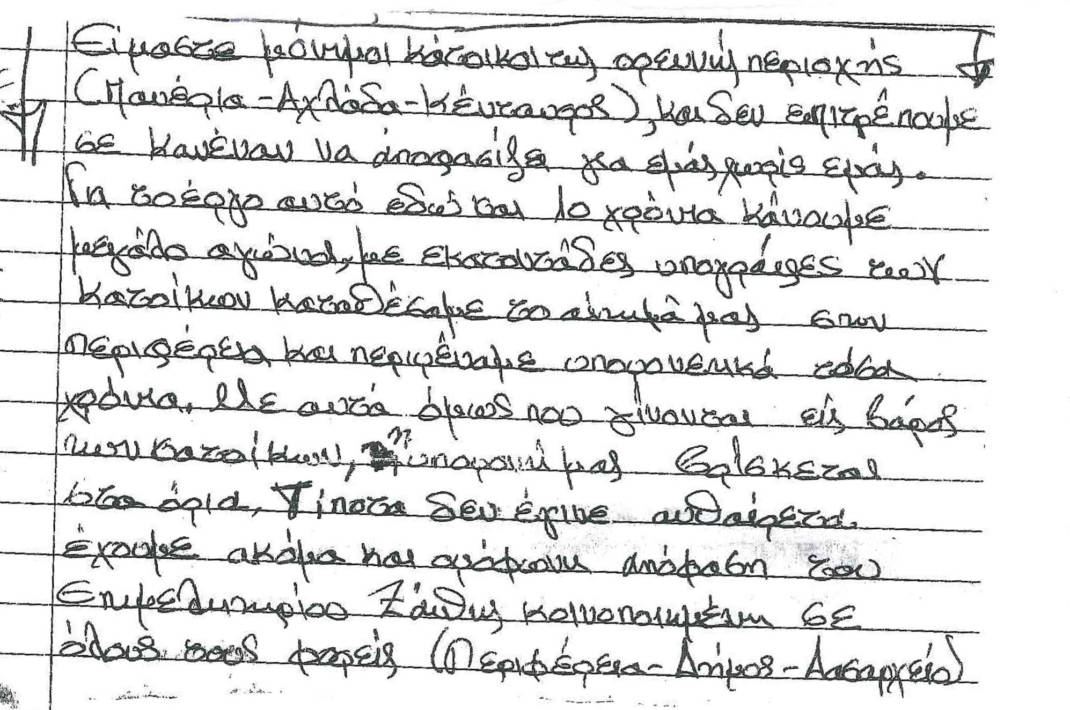 Είμαστε μόνιμοι κάτοικοι της ορεινής περιοχής
(Μανέρια-Αχλάδα-Κένταυρος), και δεν επιτρέπουμε
σε κανέναν να αποφασίζει για εμάς χωρίς εμάς.
Για το έργο αυτό εδώ και 10 χρόνια κάνουμε
μεγάλο αγώνα, με εκατοντάδες υπογράφες των
κατοίκων καταθέσαμε το αίτημά μας στην
περιφέρεια και περιμέναμε υπομονετικά τόσα
χρόνια. Με αυτά όμως που γίνονται είς βάρος
των κατοίκων, η υπομονή μας βρίσκεται
στα όρια, Τίποτα δεν έγινε αυθαίρετα.
έχουμε ακόμα και ομόφωνη απόφαση του
Επιμελητηρίου Ξάνθης κοινοποιημένη σε
όλους τους φορείς (Περιφέρεια-Δήμος-Δασαρχείο)